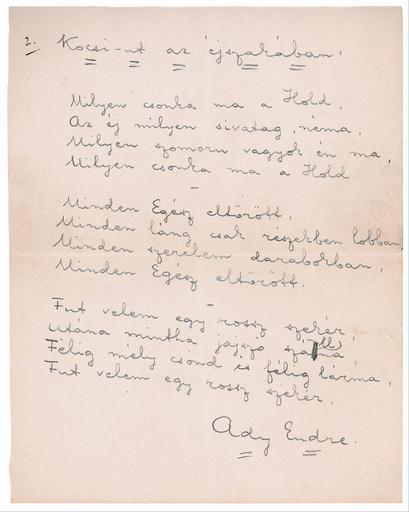 2. Kocsi-ut az éjszakában.
Milyen csonka ma a Hold,
Az éj milyen sivatag, néma,
Milyen szomoru vagyok én ma,
Milyen csonka ma a Hold.
–
Minden Egész eltörött,
Minden láng csak részekben lobban,
Minden szerelem darabokban,
Minden Egész eltörött.
–
Fut velem egy rossz szekér,
Utána mintha jajszó szállna,
Félig mély csönd és félig lárma,
Fut velem egy rossz szekér.
Ady Endre.